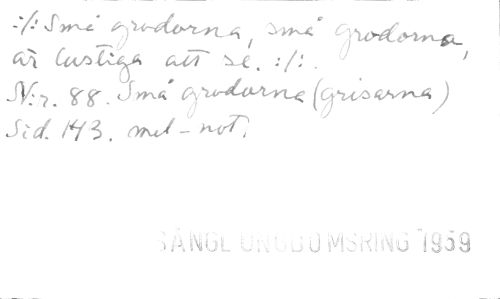 :/: Små grodorna, små grodorna,
är lustiga att se. :/:.
N:r. 88. Små grodorna (grisarna)
Sid. 143. mel-not.
SÅNGL UNGDOMSRING 1959